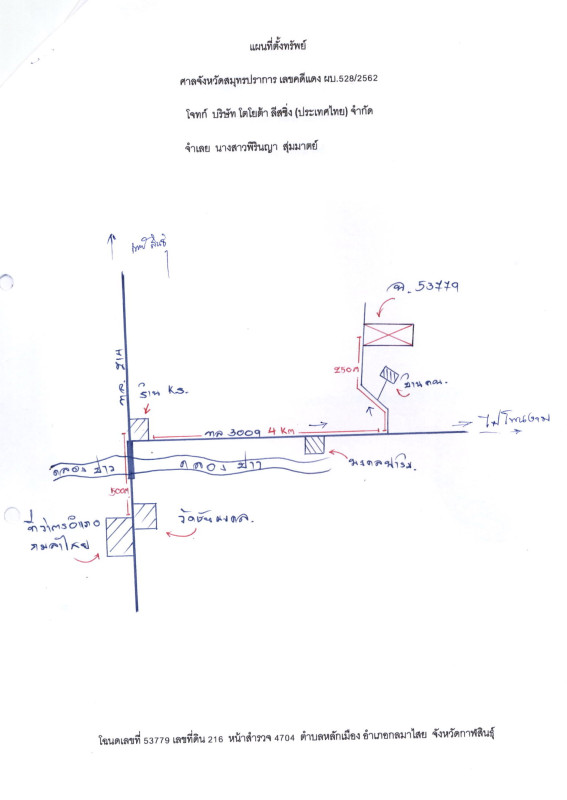 แผนที่ตั้งทรัพย์
ศาลจังหวัดสมุทรปราการ เลขคดีแดง ผบ.528/2562
โจทก์ บริษัท โตโยต้า ลีสซิ่ง (ประเทศไทย) จำกัด
จำเลย นางสาวพิรินญา สุ่มมาตย์
ฉ. 53779
250 ม
ร้าน K.S.
ทล 3009 4 Km
ไปโพนงาม
คลอง ขาว
คลอง ขาว
500ม
วัดชัยมงคล.
ที่ว่าการอำเภอ
กมลาไสย
โฉนดเลขที่ 53779 เลขที่ดิน 216 หน้าสำรวจ 4704 ตำบลหลักเมือง อำเภอกลมาไสย จังหวัดกาฬสินธุ์